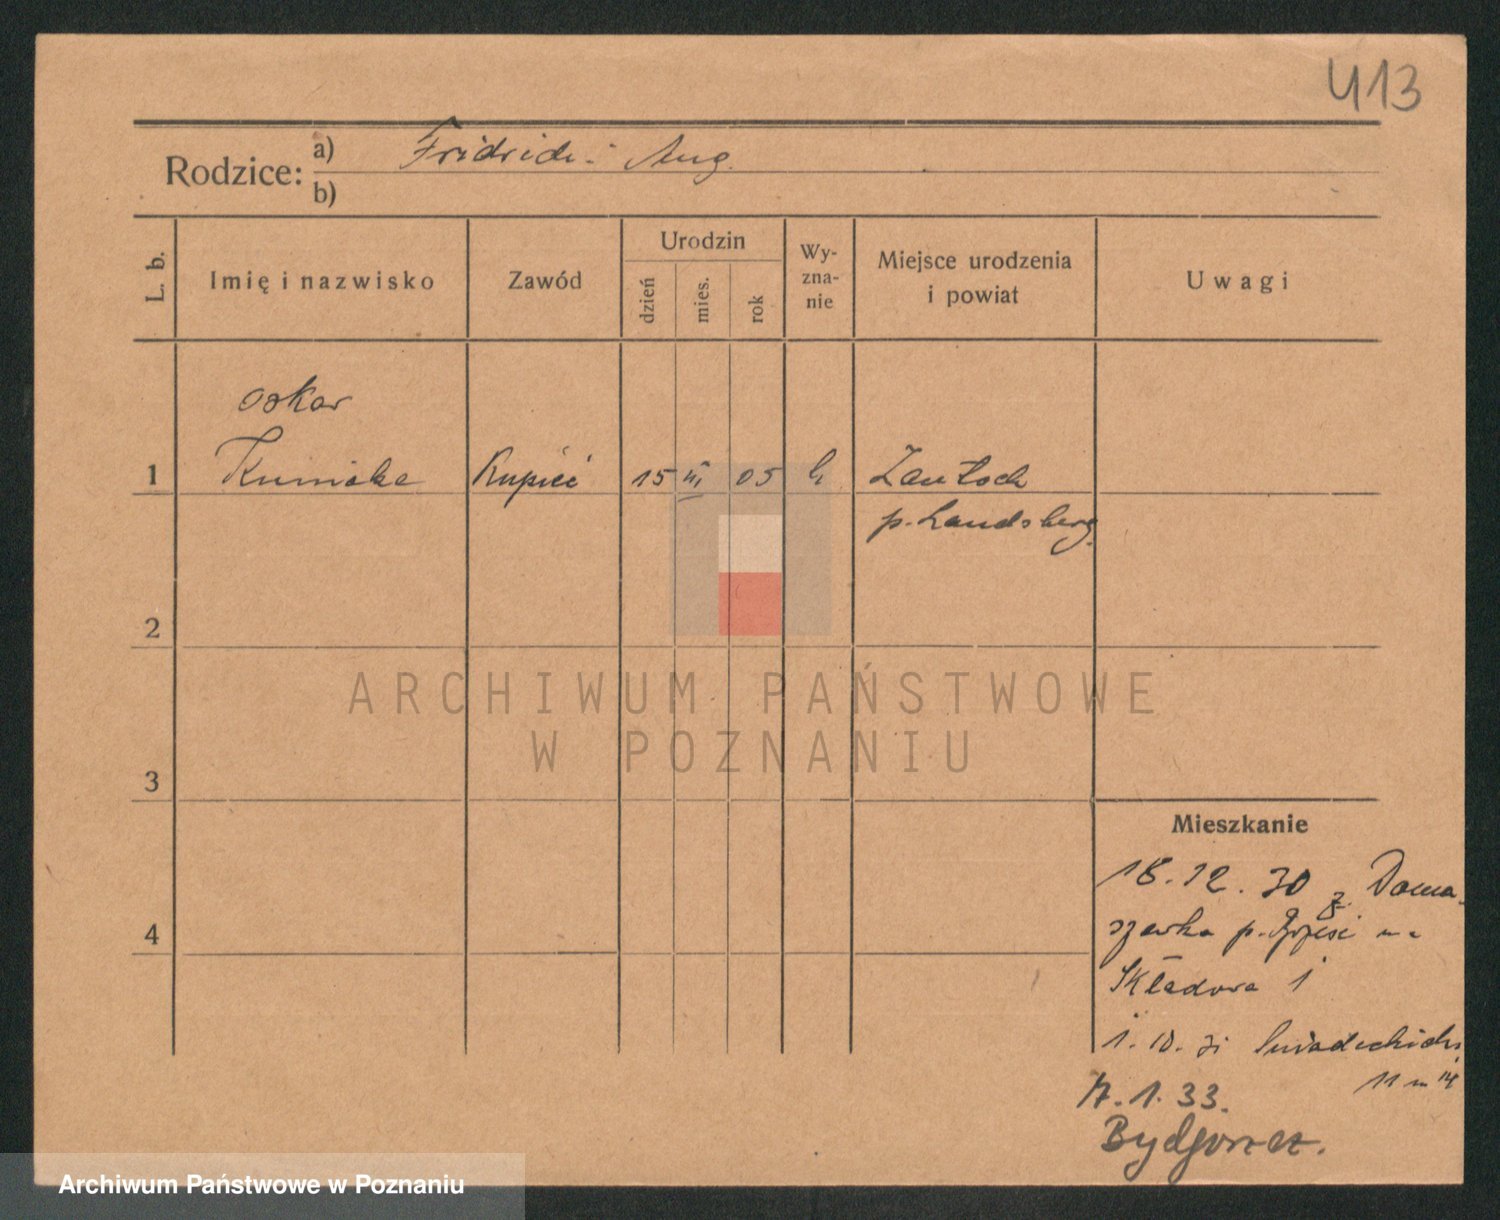 413
Rodzice: a) Fridrich - Aug.
b)
L. b.
Imię i nazwisko
Zawód
Urodzin
dzień
mies.
rok
Wy-
zna-
nie
Miejsce urodzenia
i powiat
Uwagi
Oskar
1 Kupiec 15 III 05 Zantoch
p. Landsberg.
2
ARCHIWUM PAŃSTWOWE
W POZNANIU
3
Mieszkanie
18.12.30 z Doma-
4
Składowa 1
1.10.31 Śniadeckich
11 m 14
17.1.33.
Bydgoszcz.
Archiwum Państwowe w Poznaniu